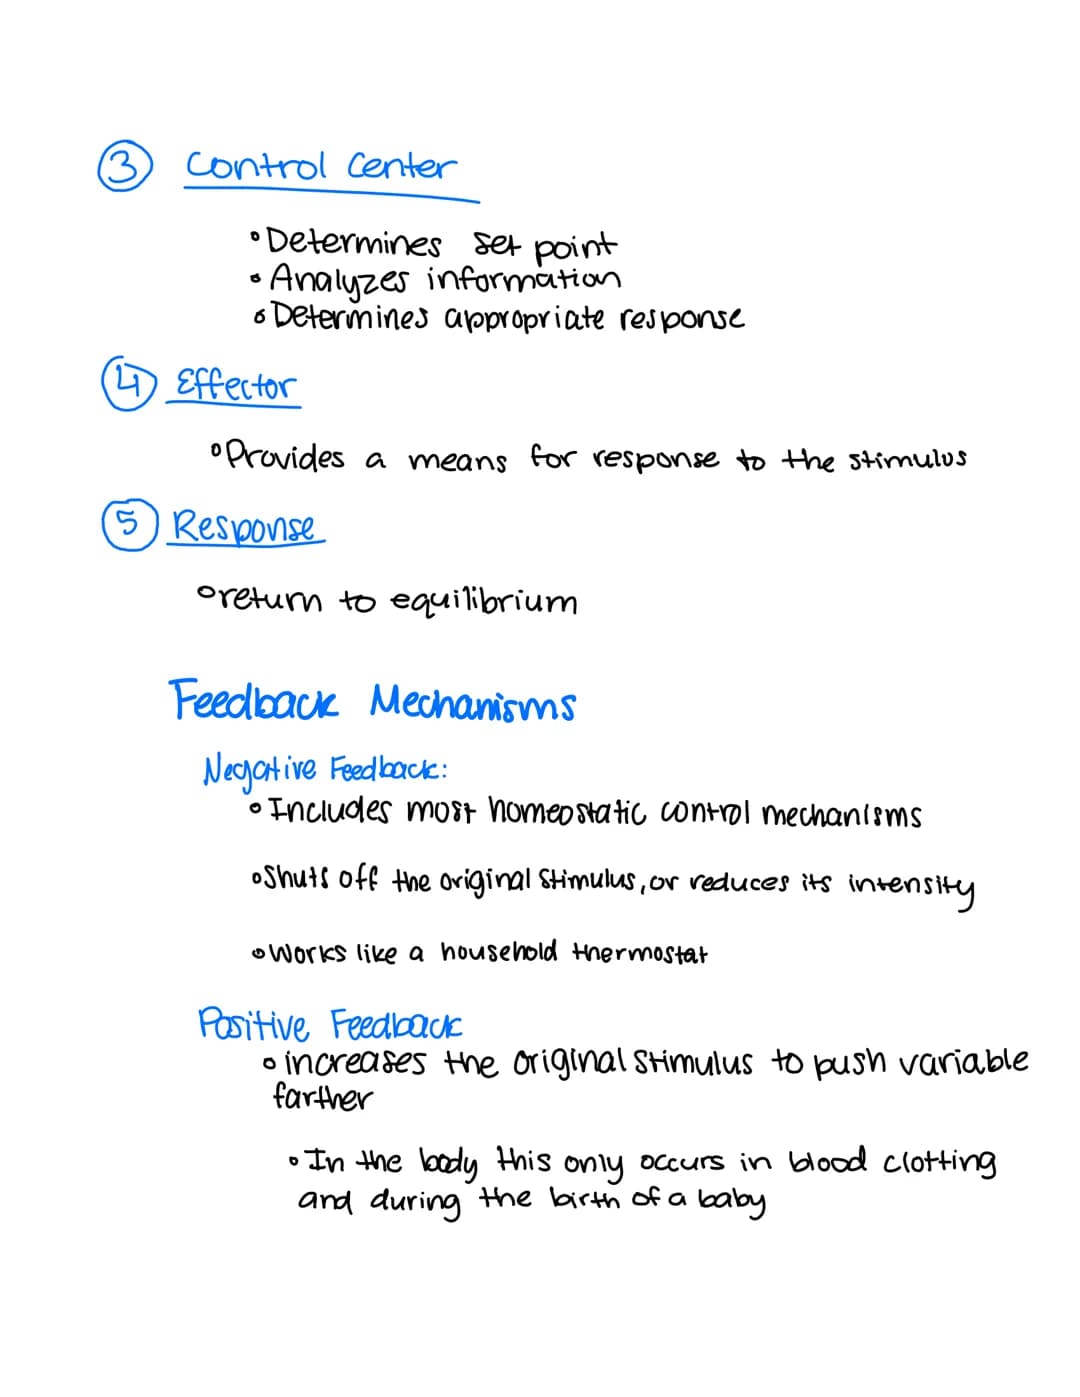 ③ Control Center
• Determines set point
• Analyzes information
• Determines appropriate response
④ Effector
• Provides a means for response to the stimulus
⑤ Response
• return to equilibrium
Feedback Mechanisms
Negative Feedback:
• Includes most homeostatic control mechanisms
• Shuts off the original stimulus, or reduces its intensity
• Works like a household thermostat
Positive Feedback
• increases the original stimulus to push variable
farther
• In the body this only occurs in blood clotting
and during the birth of a baby